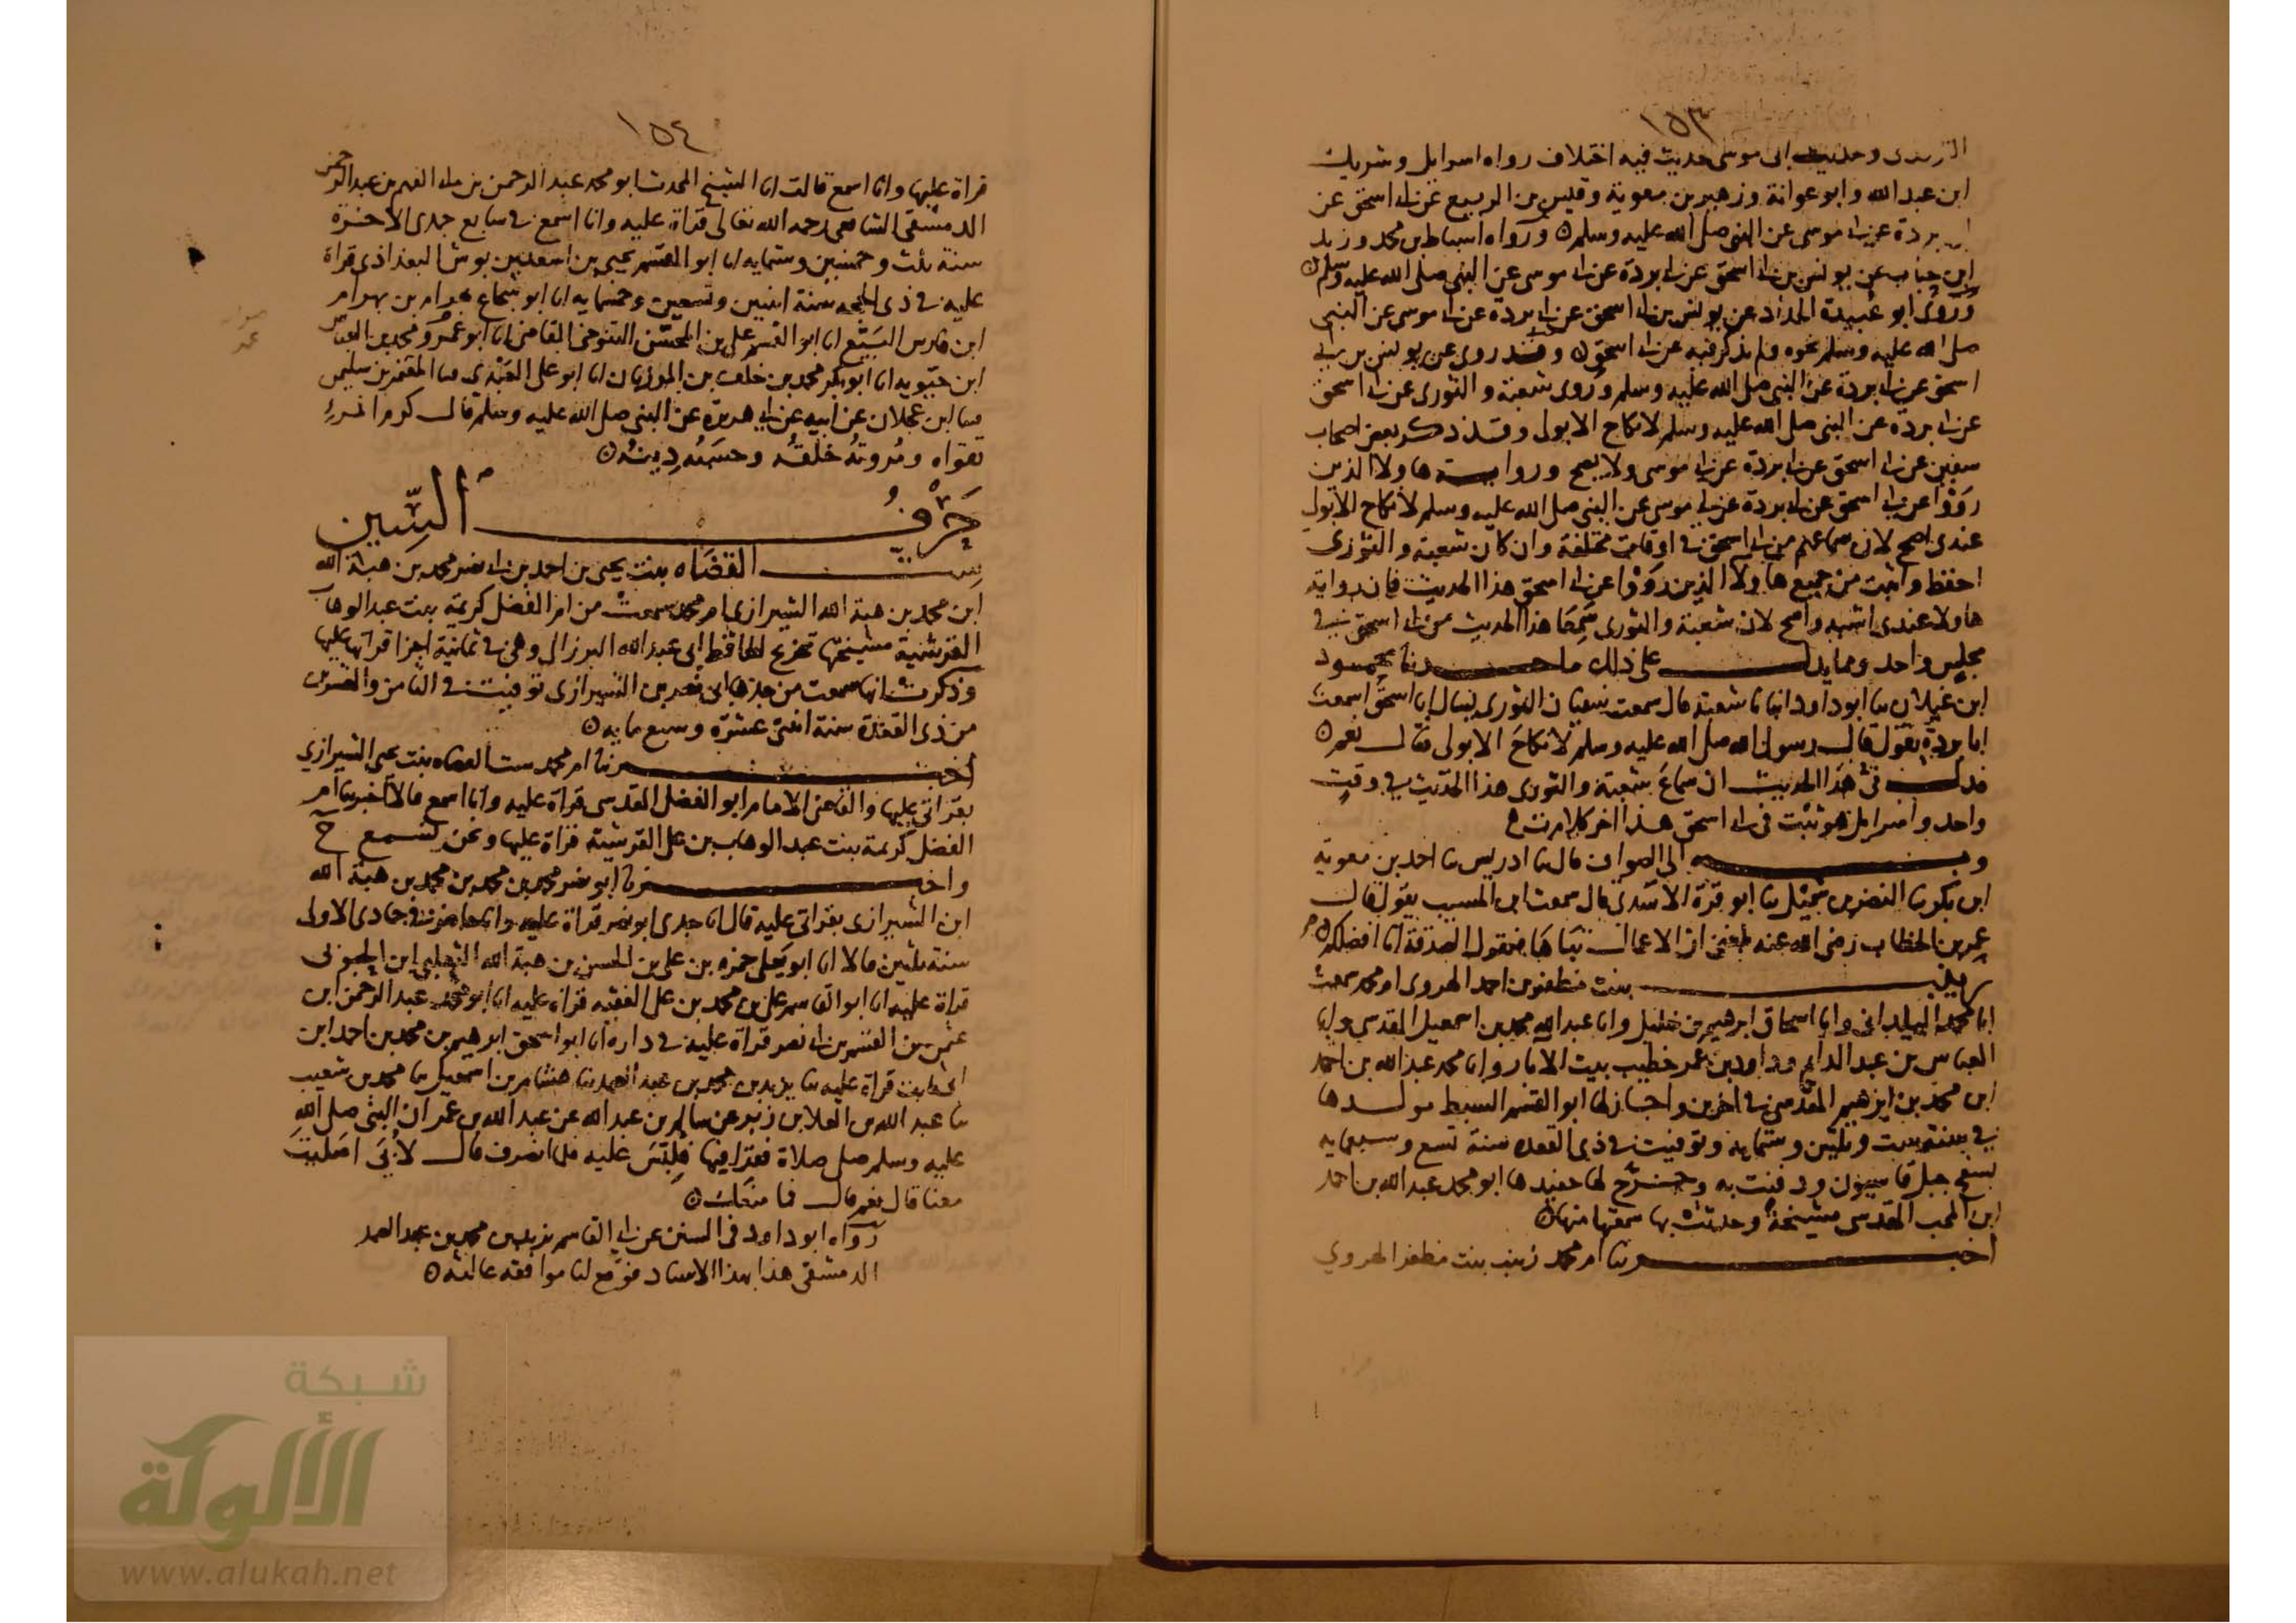 ١٥٣
الترمذى وحديث ابى موسى حديث فيه اختلاف رواه اسرايل وشريك
ابن عبد الله وابو عوانة وزهير بن معوية وقيس بن الربيع عن ابى اسحق عن
ابى بردة عن ابى موسى عن النبى صلى الله عليه وسلم ورواه اسباط بن محمد وزيد
ابن حباب عن يونس بن ابى اسحق عن ابى بردة عن ابى موسى عن النبى صلى الله عليه وسلم
وروى ابو عبيدة الحداد عن يونس بن ابى اسحق عن ابى بردة عن ابى موسى عن النبى
صلى الله عليه وسلم نحوه ولم يذكر فيه عن ابى اسحق وقد روى عن يونس بن ابى
اسحق عن ابى بردة عن النبى صلى الله عليه وسلم وروى شعبة والثورى عن ابى اسحق
عن ابى بردة عن النبى صلى الله عليه وسلم لا نكاح الا بولى وقد ذكر بعض اصحاب
سفين عن ابى اسحق عن ابى بردة عن ابى موسى ولا يصح ورواية هاولا الذين
رووا عن ابى اسحق عن ابى بردة عن ابى موسى عن النبى صلى الله عليه وسلم لا نكاح الا بولى
عندى اصح لان سماعهم من ابى اسحق فى اوقات مختلفة وان كان شعبة والثورى
احفظ واثبت من جميع هاولا الذين رووا عن ابى اسحق هذا الحديث فان رواية
هاولا عندى اشبه واصح لان شعبة والثورى سمعا هذا الحديث من ابى اسحق فى
مجلس واحد ومما يدل على ذلك ما حدثنا محمود
ابن غيلان ثنا ابو داود انبانا شعبة قال سمعت سفيان الثورى يسال ابا اسحق اسمعت
ابا بردة يقول قال رسول الله صلى الله عليه وسلم لا نكاح الا بولى فقال نعم
فدل فى هذا الحديث ان سماع شعبة والثورى هذا الحديث فى وقت
واحد واسرايل هو ثبت فى ابى اسحق هذا اخر كلام ت
وبه الى قال ثنا ادريس ثنا احمد بن معوية
ابن بكر ثنا النضر بن شميل ثنا ابو قرة الاسدى قال سمعت ابن المسيب يقول قال
عمر بن الخطاب رضى الله عنه بلغنى ان الاعمال تباها فتقول الصدقة انا افضلكم
زينب بنت مظفر بن احمد الهروى ام محمد سمعت
ابا محمد البلدانى وابا اسحاق ابرهيم بن خليل وابا عبد الله محمد بن اسمعيل المقدسى وابا
العباس بن عبد الدايم وداود بن عمر خطيب بيت الابار وابا محمد عبد الله بن احمد
ابن محمد بن ابرهيم المقدسى فى اخرين واجاز لها ابو القسم السبط مولدها
فى سنة ست وثلثين وستمايه وتوفيت فى ذى القعده سنة تسع وسبعمايه
بسفح جبل قاسيون ودفنت به وخرّج لها حفيدها ابو محمد عبد الله بن احمد
ابن المحب المقدسى مشيخة وحدثت بها سمعتها منها
اخبرتنا ام محمد زينب بنت مظفر الهروي
١٥٤
قراة عليها وانا اسمع قالت انا الشيخ المحدث ابو محمد عبد الرحمن بن ابى الفهم بن عبد الرحمن
الدمشقى الشافعى رحمه الله تعالى قراة عليه وانا اسمع فى سابع جمادى الاخرة
سنة ثلث وخمسين وستمايه انا ابو القسم يحيى بن اسعد بن بوش البغداذى قراة
عليه فى ذى الحجه سنة اثنين وتسعين وخمسمايه انا ابو شجاع بهرام بن بهرام
ابن فارس البيّع انا ابو القسم على بن المحسّن التنوخى القاضى انا ابو عمرو محمد بن العباس
ابن حيّويه انا ابو بكر محمد بن خلف بن المرزبان انا ابو على العنبرى ثنا المعتمر بن سليمن
ثنا ابن عجلان عن ابيه عن ابى هريرة عن النبى صلى الله عليه وسلم قال كرم المرء
تقواه ومروته خلقه وحسبه دينه
حَرْفُ السِّين
سِتّ القضاه بنت يحيى بن احمد بن ابى نصر محمد بن هبة الله
ابن محمد بن هبة الله الشيرازى ام محمد سمعت من ام الفضل كريمة بنت عبد الوهاب
القرشية مشيختها تخريج الحافظ ابى عبد الله البرزالى وهى فى ثمانية اجزا قراتها عليها
وذكرت انها سمعت من جدها ابى نصر بن الشيرازى توفيت فى الثامن والعشرين
من ذى القعدة سنة اثنتى عشرة وسبع مايه
اخبرتنا ام محمد ست القضاه بنت يحيى الشيرازي
بقراتى عليها والقاضى الامام ابو الفضل المقدسى قراة عليه وانا اسمع قالا اخبرتنا ام
الفضل كريمة بنت عبد الوهاب بن على القرشية قراة عليها ونحن نسمع ح
واخبرنا ابو نصر محمد بن محمد بن محمد بن هبة الله
ابن الشيرازى بقراتى عليه قال انا جدى ابو نصر قراة عليه وانا حاضر فى جمادى الاولى
سنة ثلثين قالا انا ابو يعلى حمزه بن على بن الحسن بن هبة الله الثعلبى ابن الحبوبى
قراة عليه انا ابو القاسم على بن محمد بن على الفقيه قراة عليه انا ابو محمد عبد الرحمن ابن
عثمن بن القسم بن ابى نصر قراة عليه فى داره انا ابو اسحق ابرهيم بن محمد بن احمد ابن
ابى ثابت قراة عليه ثنا يزيد بن محمد بن عبد الصمد ثنا هشام بن اسمعيل ثنا محمد بن شعيب
ثنا عبد الله بن العلا بن زبر عن سالم بن عبد الله عن عبد الله بن عمر ان النبى صلى الله
عليه وسلم صلى صلاة فقرا فيها فلبس عليه فلما انصرف قال لأبى اصليت
معنا قال نعم قال فما منعك
رواه ابو داود فى السنن عن ابى القاسم يزيد بن محمد بن عبد الصمد
الدمشقى هذا بهذا الاسناد فوقع لنا موافقه عاليه
شبكة
الألوكة
www.alukah.net